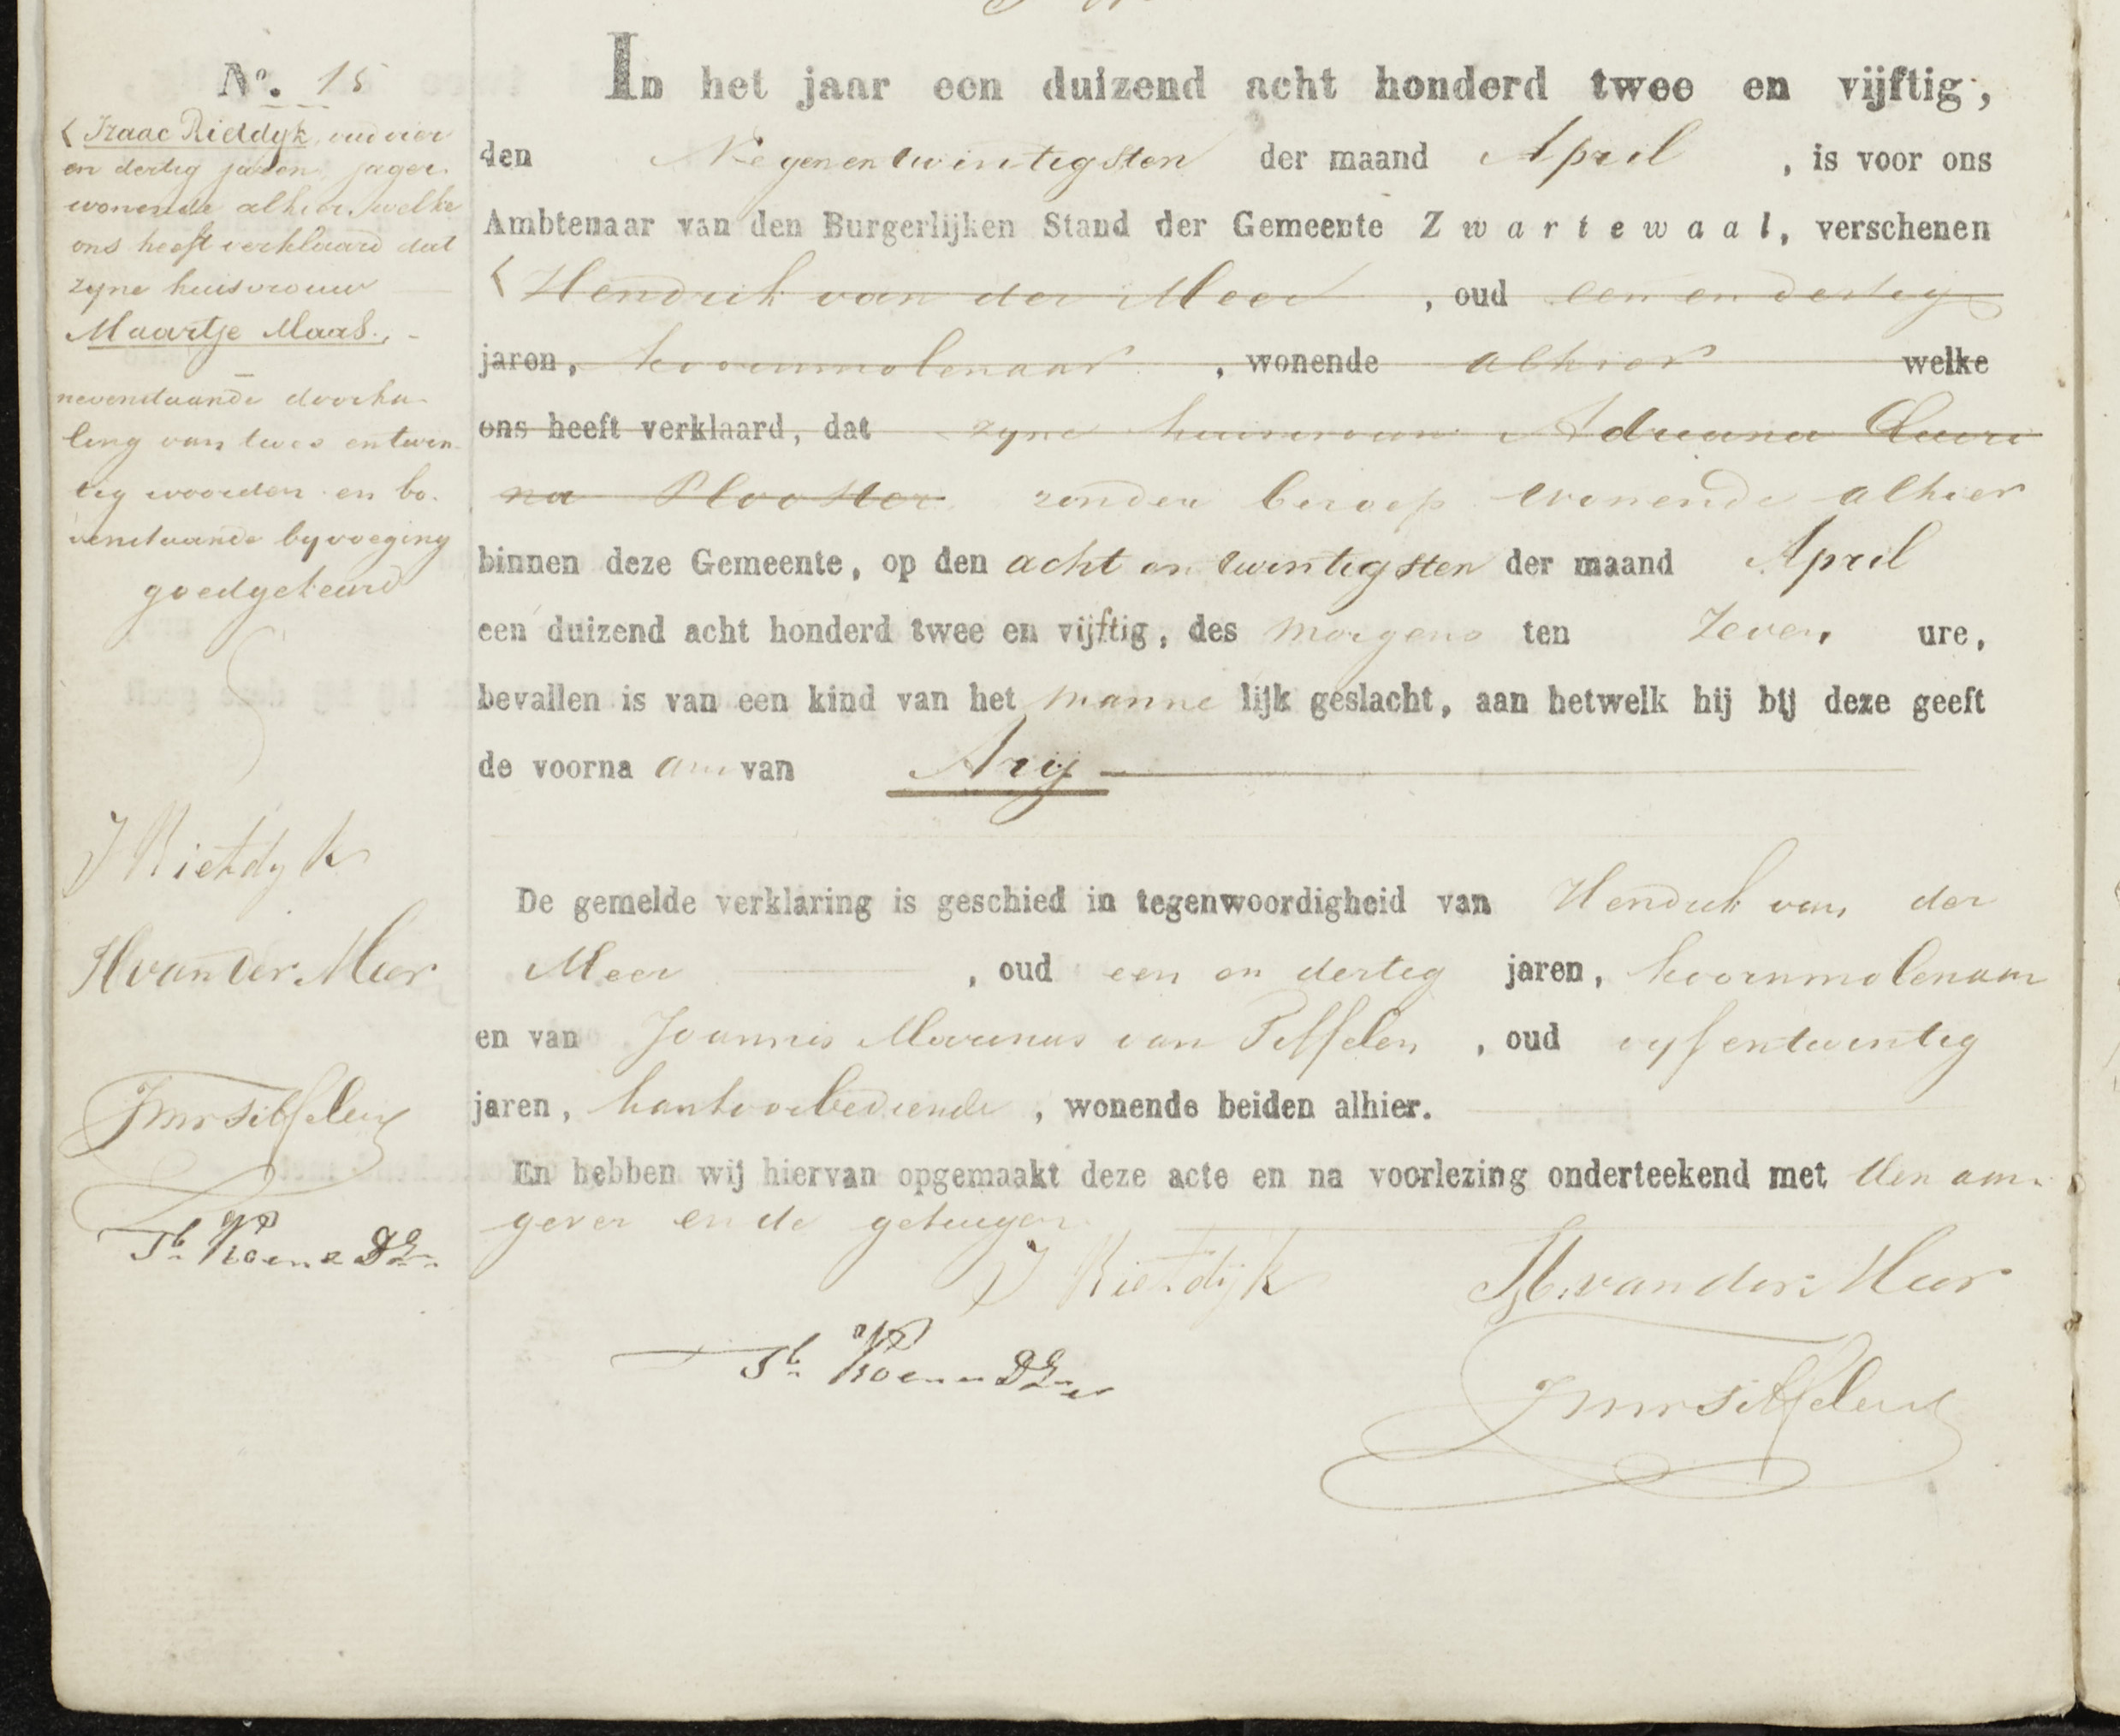 No. 15
Izaac Rietdyk, oud vier
en dertig jaren, jager.
wonende alhier, welke
ons heeft verklaard dat
zyne huisvrouw
Maartje Maas.,
nevenstaande doorha-
ling van twee entwin-
tig woorden en bo-
venstaande byvoeging
goedgekeurd
J Rietdyk
H van der Meer
In het jaar een duizend acht honderd twee en vijftig,
den Negenentwintigsten der maand April , is voor ons
Ambtenaar van den Burgerlijken Stand der Gemeente Zwartewaal, verschenen
Hendrik van der Meer , oud een en dertig
jaren, koornmolenaar , wonende alhier welke
ons heeft verklaard, dat zyne huisvrouw Adriana Lauri
na Plooster zonder beroep wonende alhier
binnen deze Gemeente, op den acht en twintigsten der maand April
een duizend acht honderd twee en vijftig, des morgens ten Zeven ure,
bevallen is van een kind van het manne lijk geslacht, aan hetwelk hij bij deze geeft
de voorna am van Arij
De gemelde verklaring is geschied in tegenwoordigheid van Hendrik van der
Meer , oud een en dertig jaren, koornmolenaar
en van Joannis Marinus van Sittelen , oud vyf entwintig
jaren, kantoorbediende , wonende beiden alhier.
En hebben wij hiervan opgemaakt deze acte en na voorlezing onderteekend met den aan-
gever en de getuigen
J Rietdijk H. van der Meer